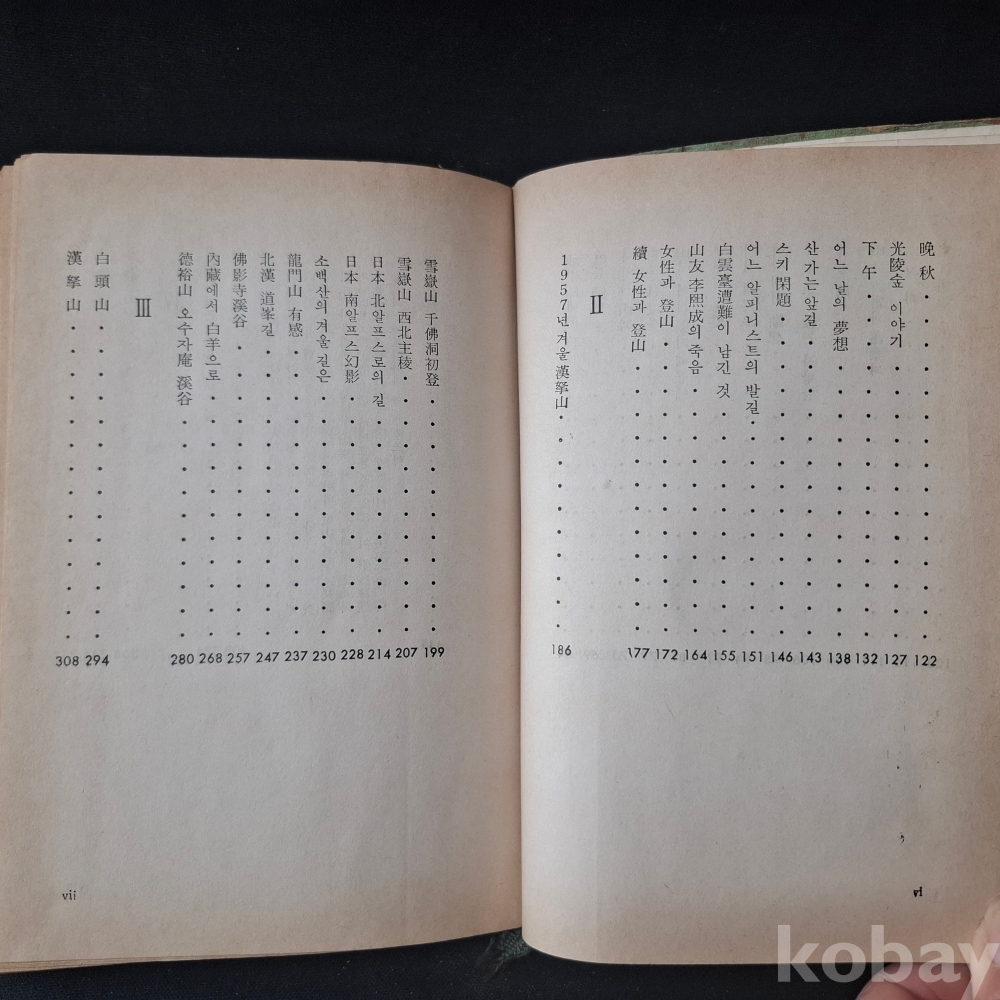 晩秋 122
光陵숲 이야기 127
下午 132
어느 날의 夢想 138
산가는 앞길 143
스키 閑題 146
어느 알피니스트의 발길 151
白雲臺遭難이 남긴 것 155
山友 李熙成의 죽음 164
女性과 登山 172
續 女性과 登山 177
Ⅱ
1957년 겨울 漢拏山 186
vi
雪嶽山 千佛洞初登 199
雪嶽山 西北主稜 207
日本 北알프스로의 길 214
日本 南알프스幻影 228
소백산의 겨울 길은 230
龍門山 有感 237
北漢 道峯길 247
佛影寺溪谷 257
內藏에서 白羊으로 268
德裕山 오수자庵 溪谷 280
Ⅲ
白頭山 294
漢拏山 308
vii
kobay